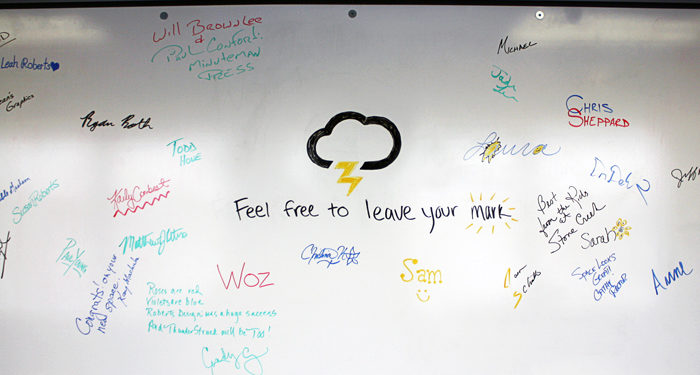 Leah Roberts
Graphics
Will Brownlee
&
Paul Conforti
Minuteman
Press
Michael
Chris
Sheppard
Ryan Roth
Todd
Howe
Laura
Susan Roberts
Feel free to leave your mark
Best
from the Kids
at
Stone Creek
Sarah
Congrats! on your
new space
Woz
Sam
Space Looks
Great!!
Anne
Roses are red,
Violets are blue
Roberts Design was a huge success
And ThunderStruck will be Too!